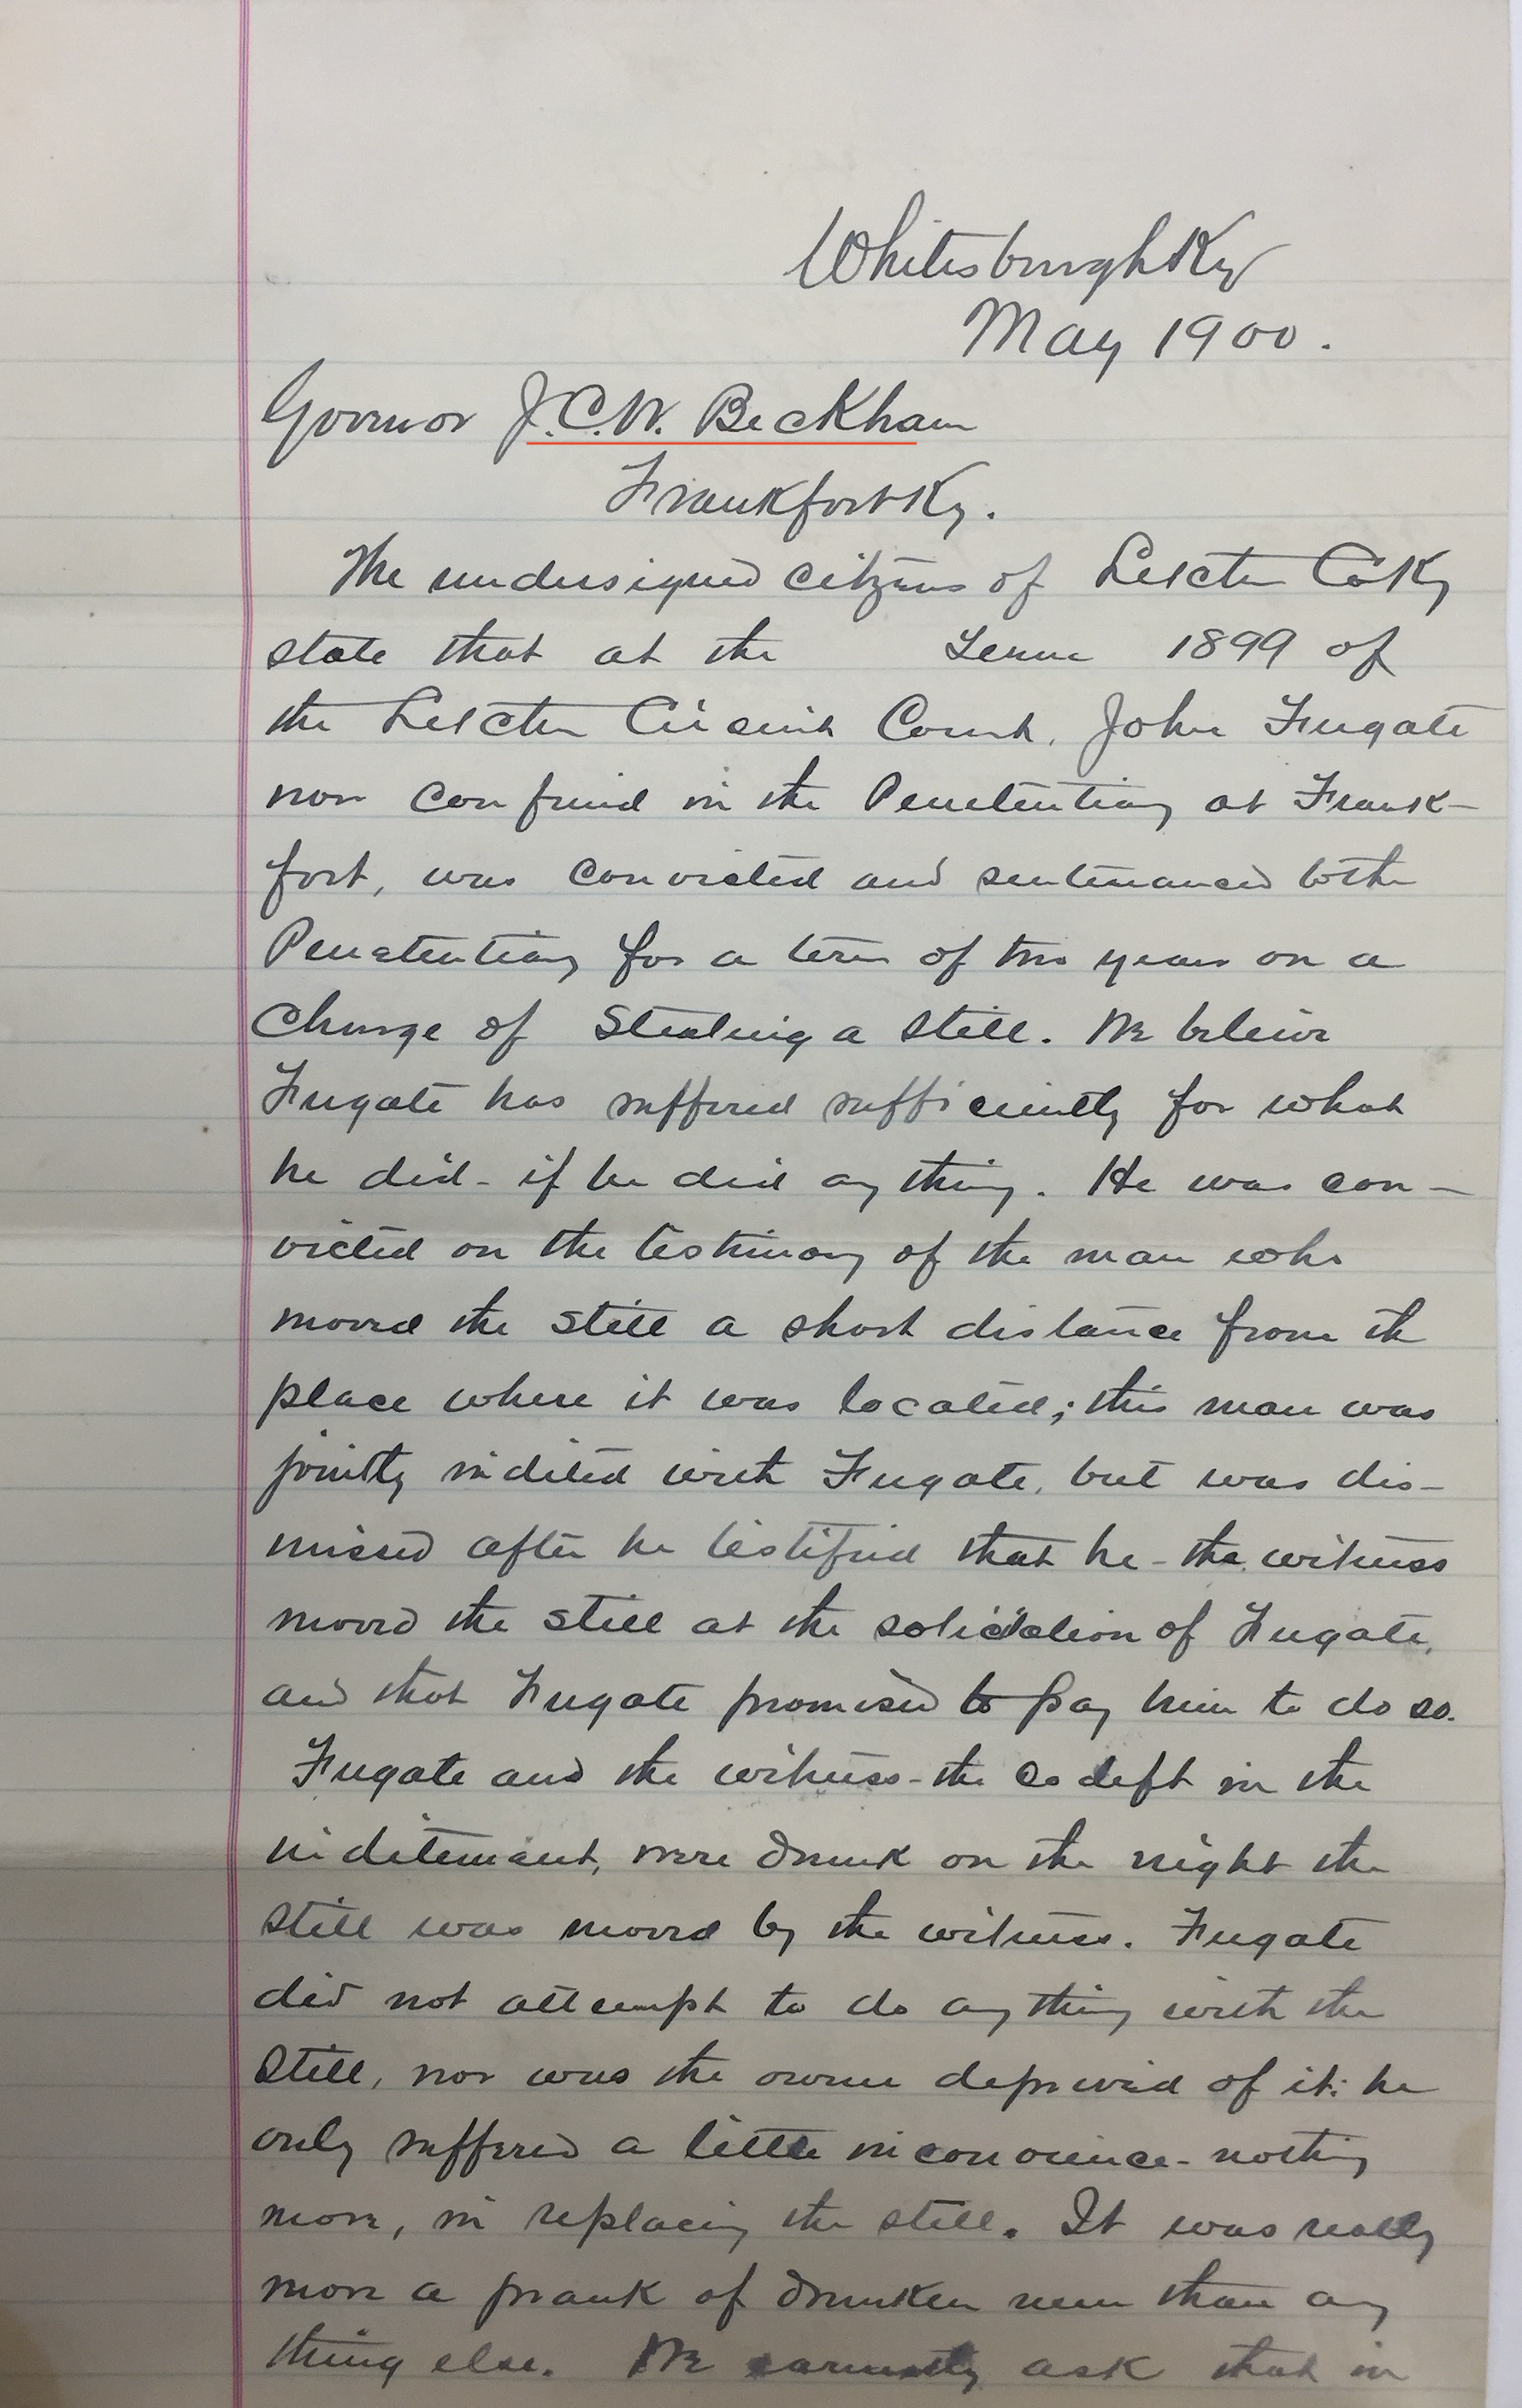 Whitesburgh Ky
May 1900.
Governor J.C.W. Beckham
Frankfort Ky.
The undersigned citizens of Letcher Co Ky
state that at the Term 1899 of
the Letcher Circuit Court, John Fugate
now confined in the Penetentiary at Frank-
fort, was convicted and sentenanced to the
Penetentiary for a term of two years on a
charge of Stealing a Still. We believe
Fugate has suffered sufficiently for what
he did - if he did any thing. He was con-
victed on the testimony of the man who
moved the still a short distance from the
place where it was located; this man was
jointly indicted with Fugate, but was dis-
missed after he testified that he - the witness
moved the still at the solicitation of Fugate,
and that Fugate promised to pay him to do so.
Fugate and the witness - the co deft in the
indictemant, were drunk on the night the
still was moved by the witness. Fugate
did not attempt to do any thing with the
Still, nor was the owner deprived of it: he
only suffered a little inconvience - nothing
more, in replacing the still. It was really
more a prank of drunken men than any
thing else. We earnestly ask that in